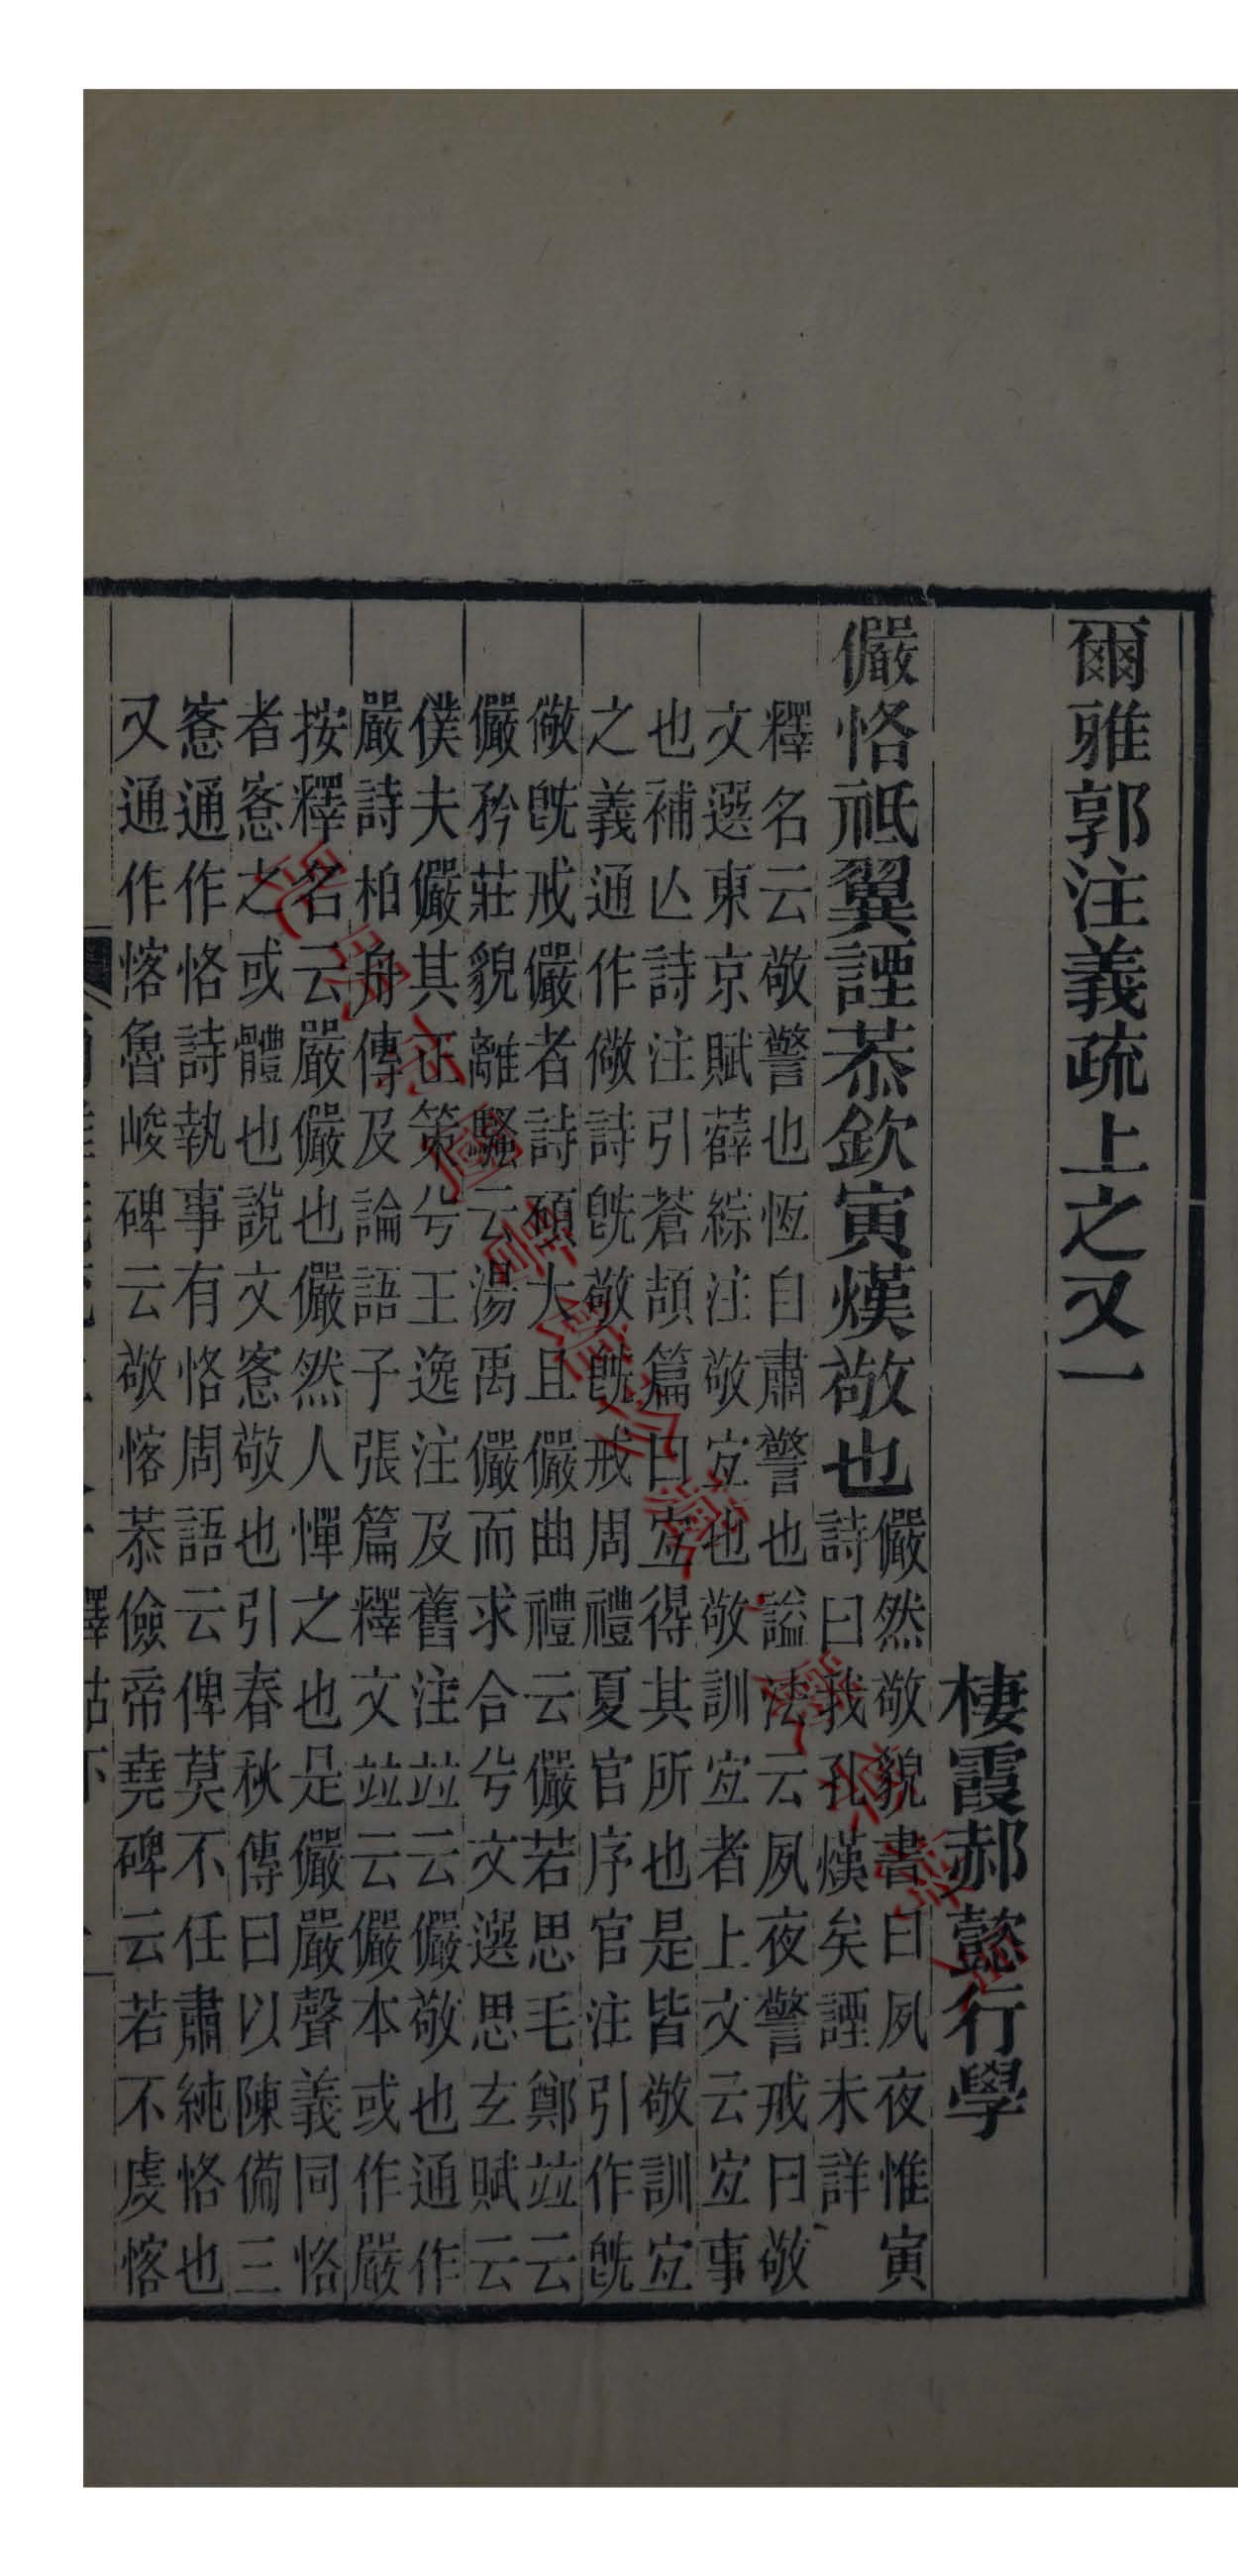 爾雅郭注義疏上之又一
棲霞郝懿行學
儼恪祗翼諲恭欽寅熯敬也
儼然敬貌書曰夙夜惟寅
詩曰我孔熯矣諲未詳
釋名云敬警也恆自肅警也謚法云夙夜警戒曰敬
文選東京賦薛綜注敬宐也敬訓宐者上文云宐事
也補亾詩注引蒼頡篇曰宐得其所也是皆敬訓宐
之義通作儆詩旣敬旣戒周禮夏官序官注引作旣
儆旣戒儼者詩碩大且儼曲禮云儼若思毛鄭竝云
儼矜莊貌離騷云湯禹儼而求合兮文選思玄賦云
僕夫儼其正策兮王逸注及舊注竝云儼敬也通作
嚴詩柏舟傳及論語子張篇釋文竝云儼本或作嚴
按釋名云嚴儼也儼然人憚之也是儼嚴聲義同恪
者愙之或體也說文愙敬也引春秋傳曰以陳備三
愙通作恪詩執事有恪周語云俾莫不任肅純恪也
又通作愘魯峻碑云敬愘恭儉帝堯碑云若不虔愘